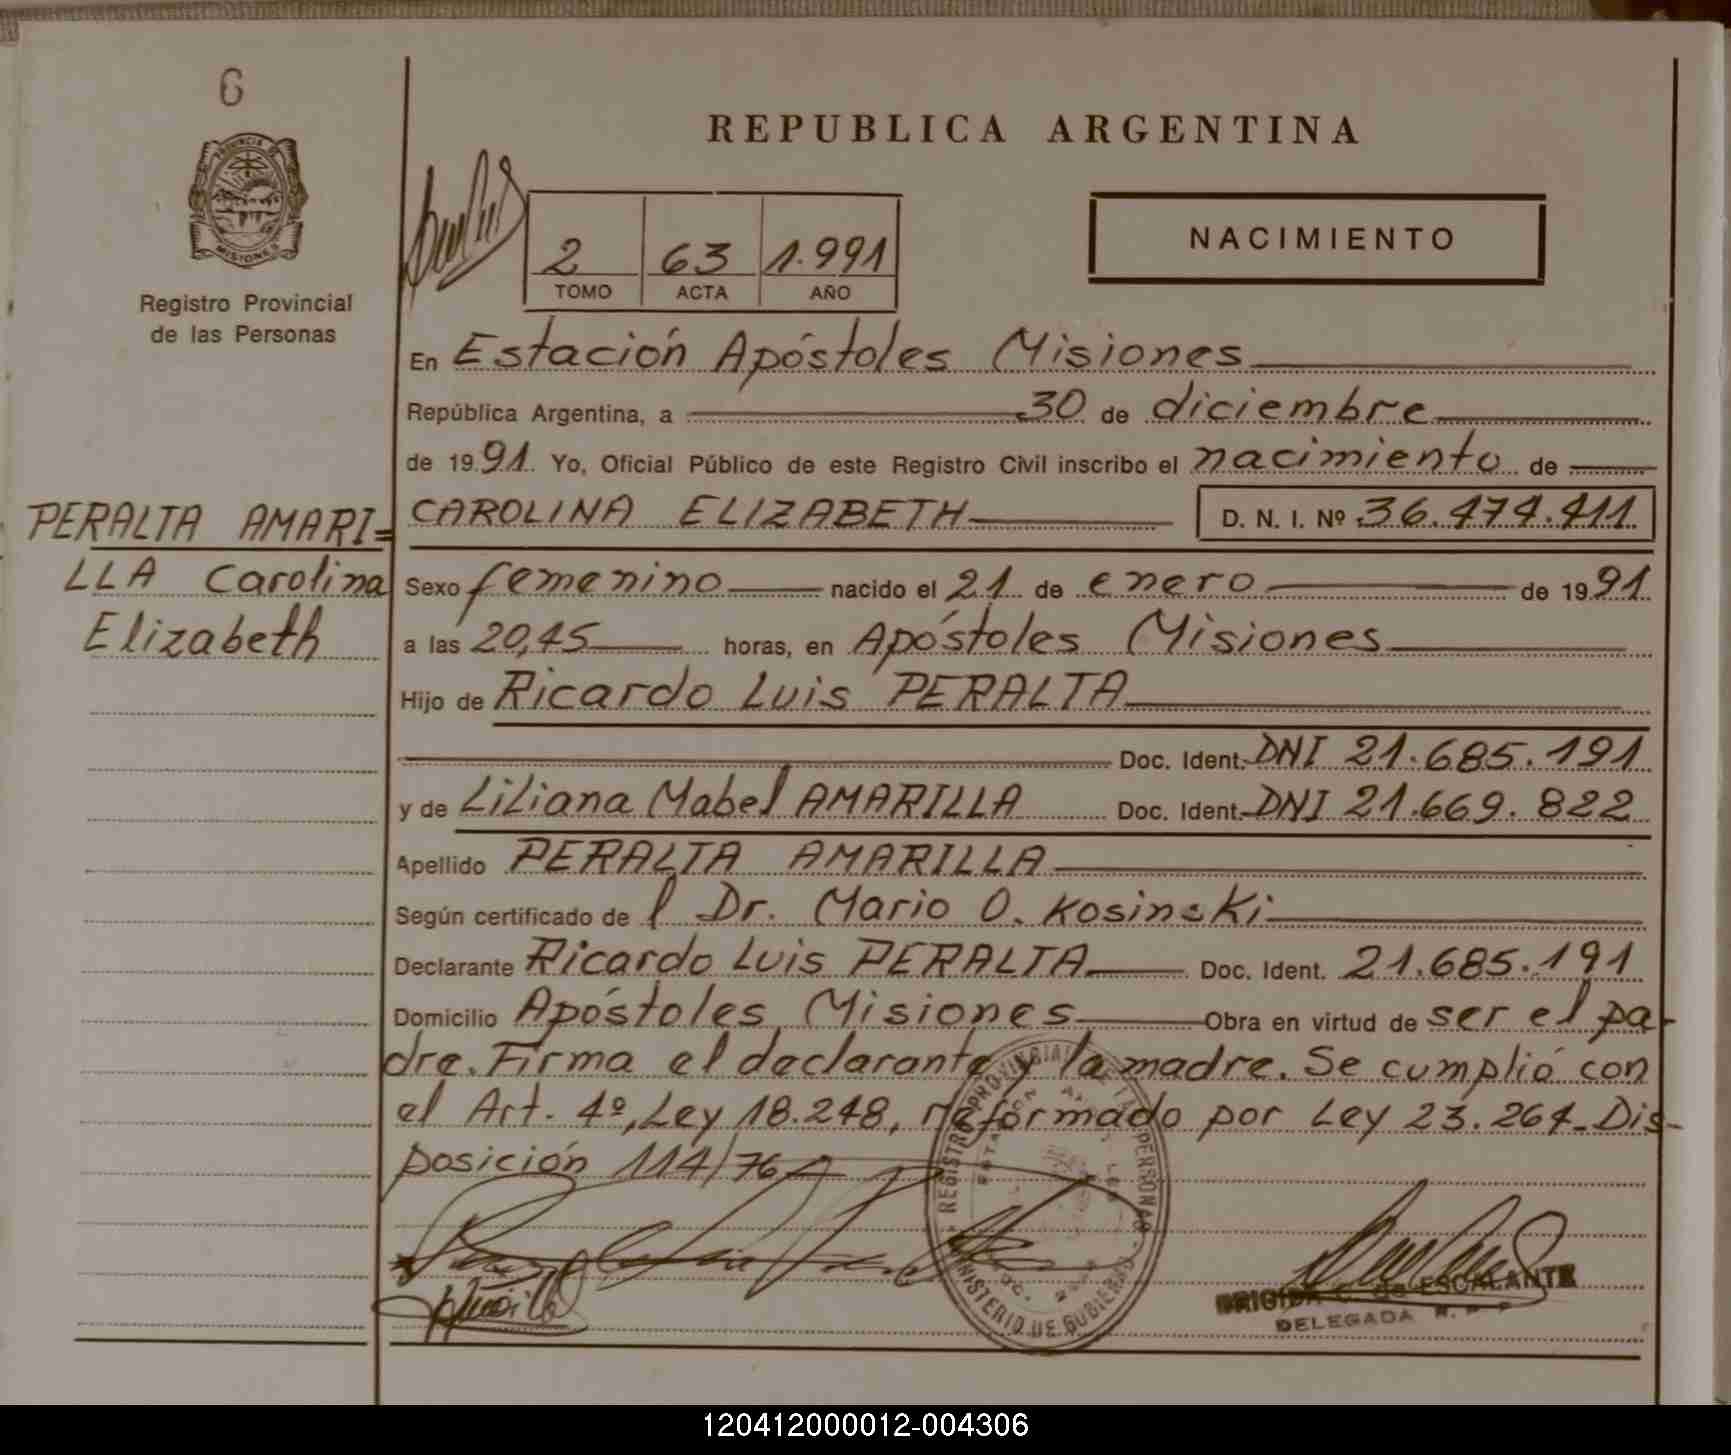 6
REPUBLICA ARGENTINA
NACIMIENTO
2 63 1.991
TOMO ACTA AÑO
PROVINCIA DE
MISIONES
Registro Provincial
de las Personas
En Estación Apóstoles Misiones
República Argentina, a 30 de diciembre
de 1991. Yo, Oficial Público de este Registro Civil inscribo el nacimiento de
PERALTA AMARI=
LLA Carolina
Elizabeth
CAROLINA ELIZABETH D. N. I. Nº 36.474.411
Sexo femenino nacido el 21 de enero de 1991
a las 20,45 horas, en Apóstoles Misiones
Hijo de Ricardo Luis PERALTA
Doc. Ident. DNI 21.685.191
y de Liliana Mabel AMARILLA Doc. Ident. DNI 21.669.822
Apellido PERALTA AMARILLA
Según certificado de l Dr. Mario O. Kosinski
Declarante Ricardo Luis PERALTA Doc. Ident. 21.685.191
Domicilio Apóstoles Misiones Obra en virtud de ser el pa-
dre. Firma el declarante y la madre. Se cumplió con
el Art. 4º, Ley 18.248, reformado por Ley 23.264. Dis-
posición 114/76
REGISTRO PROVINCIAL DE LAS PERSONAS
MINISTERIO DE GOBIERNO
BRIGIDA C. de ESCALANTE
DELEGADA R. P. P.
120412000012-004306